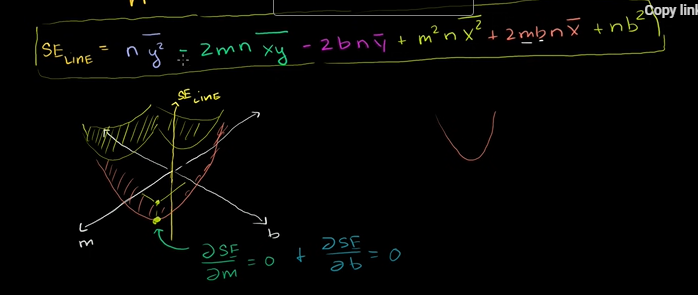 Copy link
SE_LINE = n\overline{y^2} - 2mn\overline{xy} - 2bn\overline{y} + m^2n\overline{x^2} + 2mbn\overline{x} + nb^2
SE_LINE
m
b
∂SE/∂m = 0 + ∂SE/∂b = 0